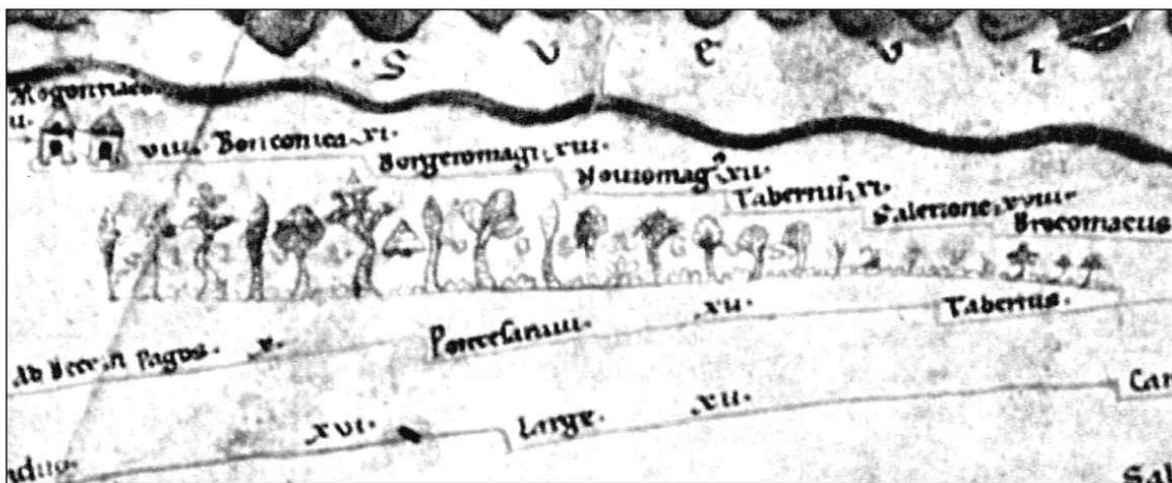 S V E V I
Mogontiaco
II.
viiii. Bonconica. xi.
Borgetomagi. xiii.
Nouiomag. xii.
Tabernis. xi.
Saletione. xviii.
Brocomacus
Ad Decem Pagos. x.
Pontesaraui.
xii.
Tabernis.
xvi.
Large.
xii.
Sal